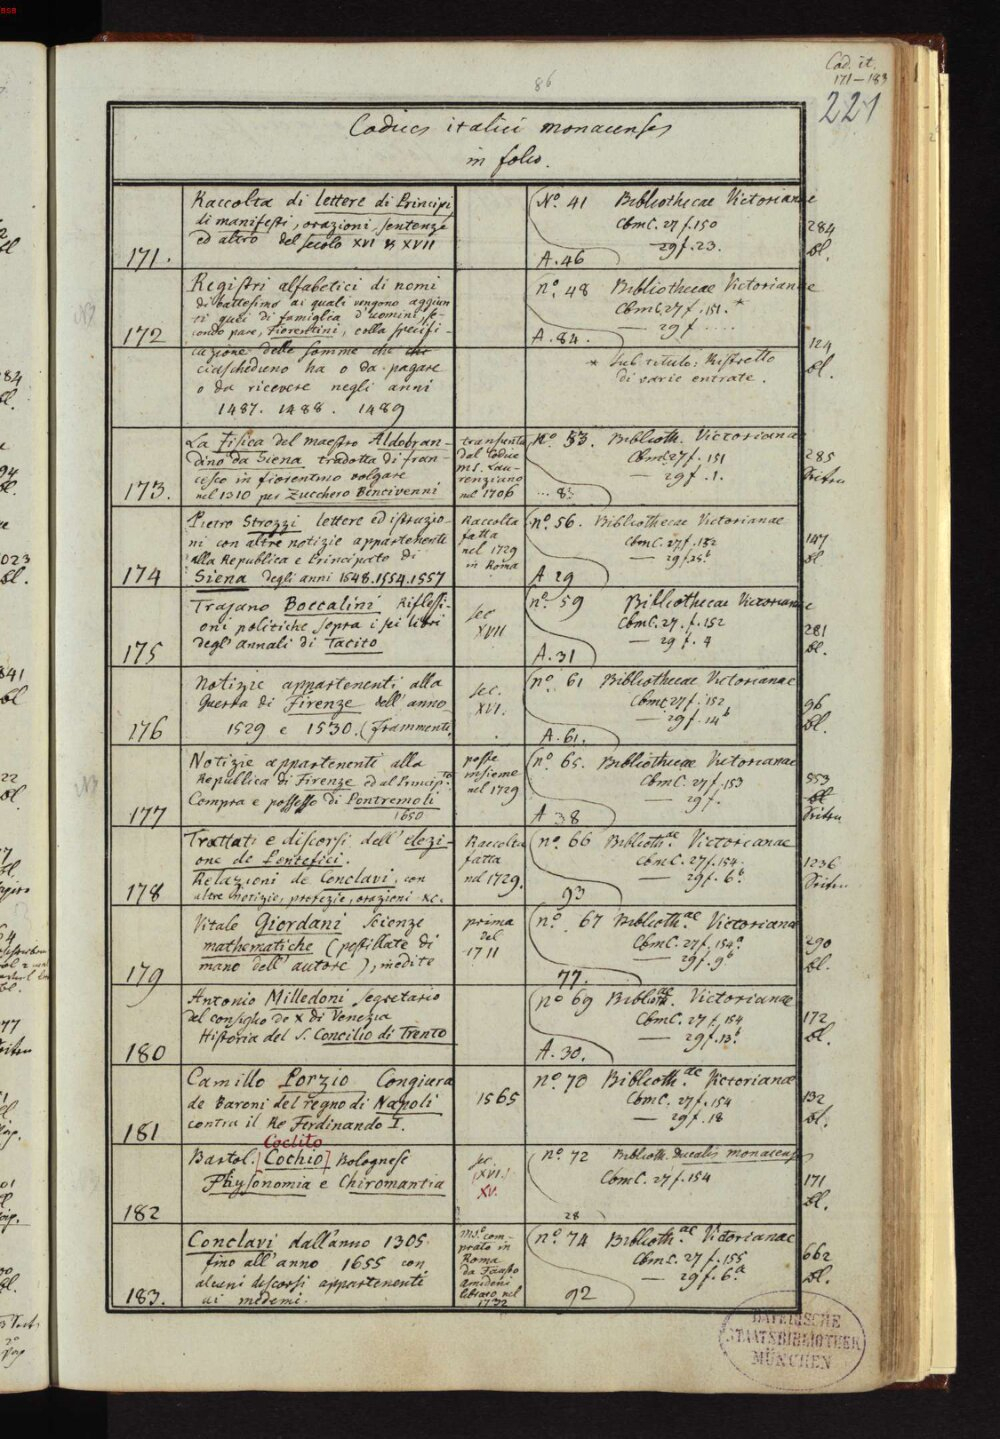 86
Cod. it.
171-183
221
Codices italici monacenses
in folio.
171.
Raccolta di lettere di Principi
di manifesti, orazioni, sentenze
ed altro del secolo XVI & XVII
No. 41 Bibliothecae Victorianae
CbmC. 27 f. 150
29 f. 23.
A. 46
284
bl.
172
Registri alfabetici di nomi
di battesimo ai quali vengono aggiun
ti quei di famiglia d'uomini, se-
condo pare, Fiorentini, colla specifi-
cazione delle somme che
ciascheduno ha o da pagare
o da ricevere negli anni
1487. 1488. 1489
no. 48 Bibliothecae Victorianae
CbmC 27 f. 151. *
29 f ....
A. 84.
* sub titulo: Ristretto
di varie entrate.
124
bl.
173.
La Fisica del maestro Aldobran-
dino da Siena tradotta di fran-
cesco in fiorentino volgare
nel 1310 per Zucchero Bencivenni
transunta
dal Codice
ms. Lau-
renziano
nel 1706
no 53. Biblioth. Victoriana
CbmC 27 f. 151
29 f. 1.
... 83
285
Seiten
174
Pietro Strozzi lettere ed istruzio-
ni con altre notizie appartenenti
alla Republica e Principato di
Siena degli anni 1548.1554.1557
Raccolta
fatta
nel 1729
in Roma
no. 56. Bibliothecae Victorianae
CbmC. 27 f. 152
29 f. 25b
A 29
147
bl
175
Trajano Boccalini Riflessi-
oni politiche sopra i sei libri
degl' annali di Tacito
sec
XVII
no. 59 Bibliothecae Victorianae
CbmC. 27. f. 152
29 f. 4
A. 31
281
bl.
176
Notizie appartenenti alla
Guerra di Firenze dell' anno
1529 e 1530. (frammenti)
sec.
XVI.
no. 61 Bibliothecae Victorianae
CbmC 27 f. 152
29 f. 14b
A. 61.
96
bl.
177
Notizie appartenenti alla
Republica di Firenze ed al Principto
Compra e possesso di Pontremoli
1650
poste
insieme
nel 1729
no. 65. Bibliothecae Victorianae
CbmC. 27 f. 153
29 f.
A 38
553
bl
Seiten
178
Trattati e discorsi dell' elezi-
one de Pontefici.
Relazioni de Conclavi, con
altre notizie, profezie, orazioni &c.
Raccolta
fatta
nel 1729.
no. 66 Biblioth.ae Victorianae
CbmC. 27 f. 154.
29 f. 6b
93
1236
Seiten
179
Vitale Giordani Scienze
mathematiche (postillate di
mano dell' autore), inedite
prima
del
1711
no. 67 Biblioth.ae Victoriana
CbmC. 27 f. 154a
29 f. 9b
77.
290
bl.
180
Antonio Milledoni Segretario
del consiglio de X di Venezia
Historia del S. Concilio di Trento
no 69 Biblioth.ae Victorianae
CbmC. 27 f. 154
29 f. 13b
A. 30.
172
bl.
181
Camillo Porzio Congiura
de Baroni del regno di Napoli
contra il Re Ferdinando I.
1565
no. 70 Biblioth.ae Victorianae
CbmC. 27 f. 154
29 f. 18
132
bl.
182
Coclito
Bartol. [Cochio] Bolognese
Physonomia e Chiromantia
sec.
(XVI.)
XV.
no. 72 Biblioth. Ducalis monacensis
CbmC. 27 f. 154
28
171
bl.
183.
Conclavi dall' anno 1305
fino all' anno 1655 con
alcuni discorsi appartenenti
ai medemi.
ms.o com-
prato in
Roma
da Fausto
Amideni
libraro, nel
1732
no. 74 Biblioth.ae Victorianae
CbmC. 27 f. 155
29 f. 6a
92
662
bl.
BAYERISCHE
STAATSBIBLIOTHEK
MÜNCHEN